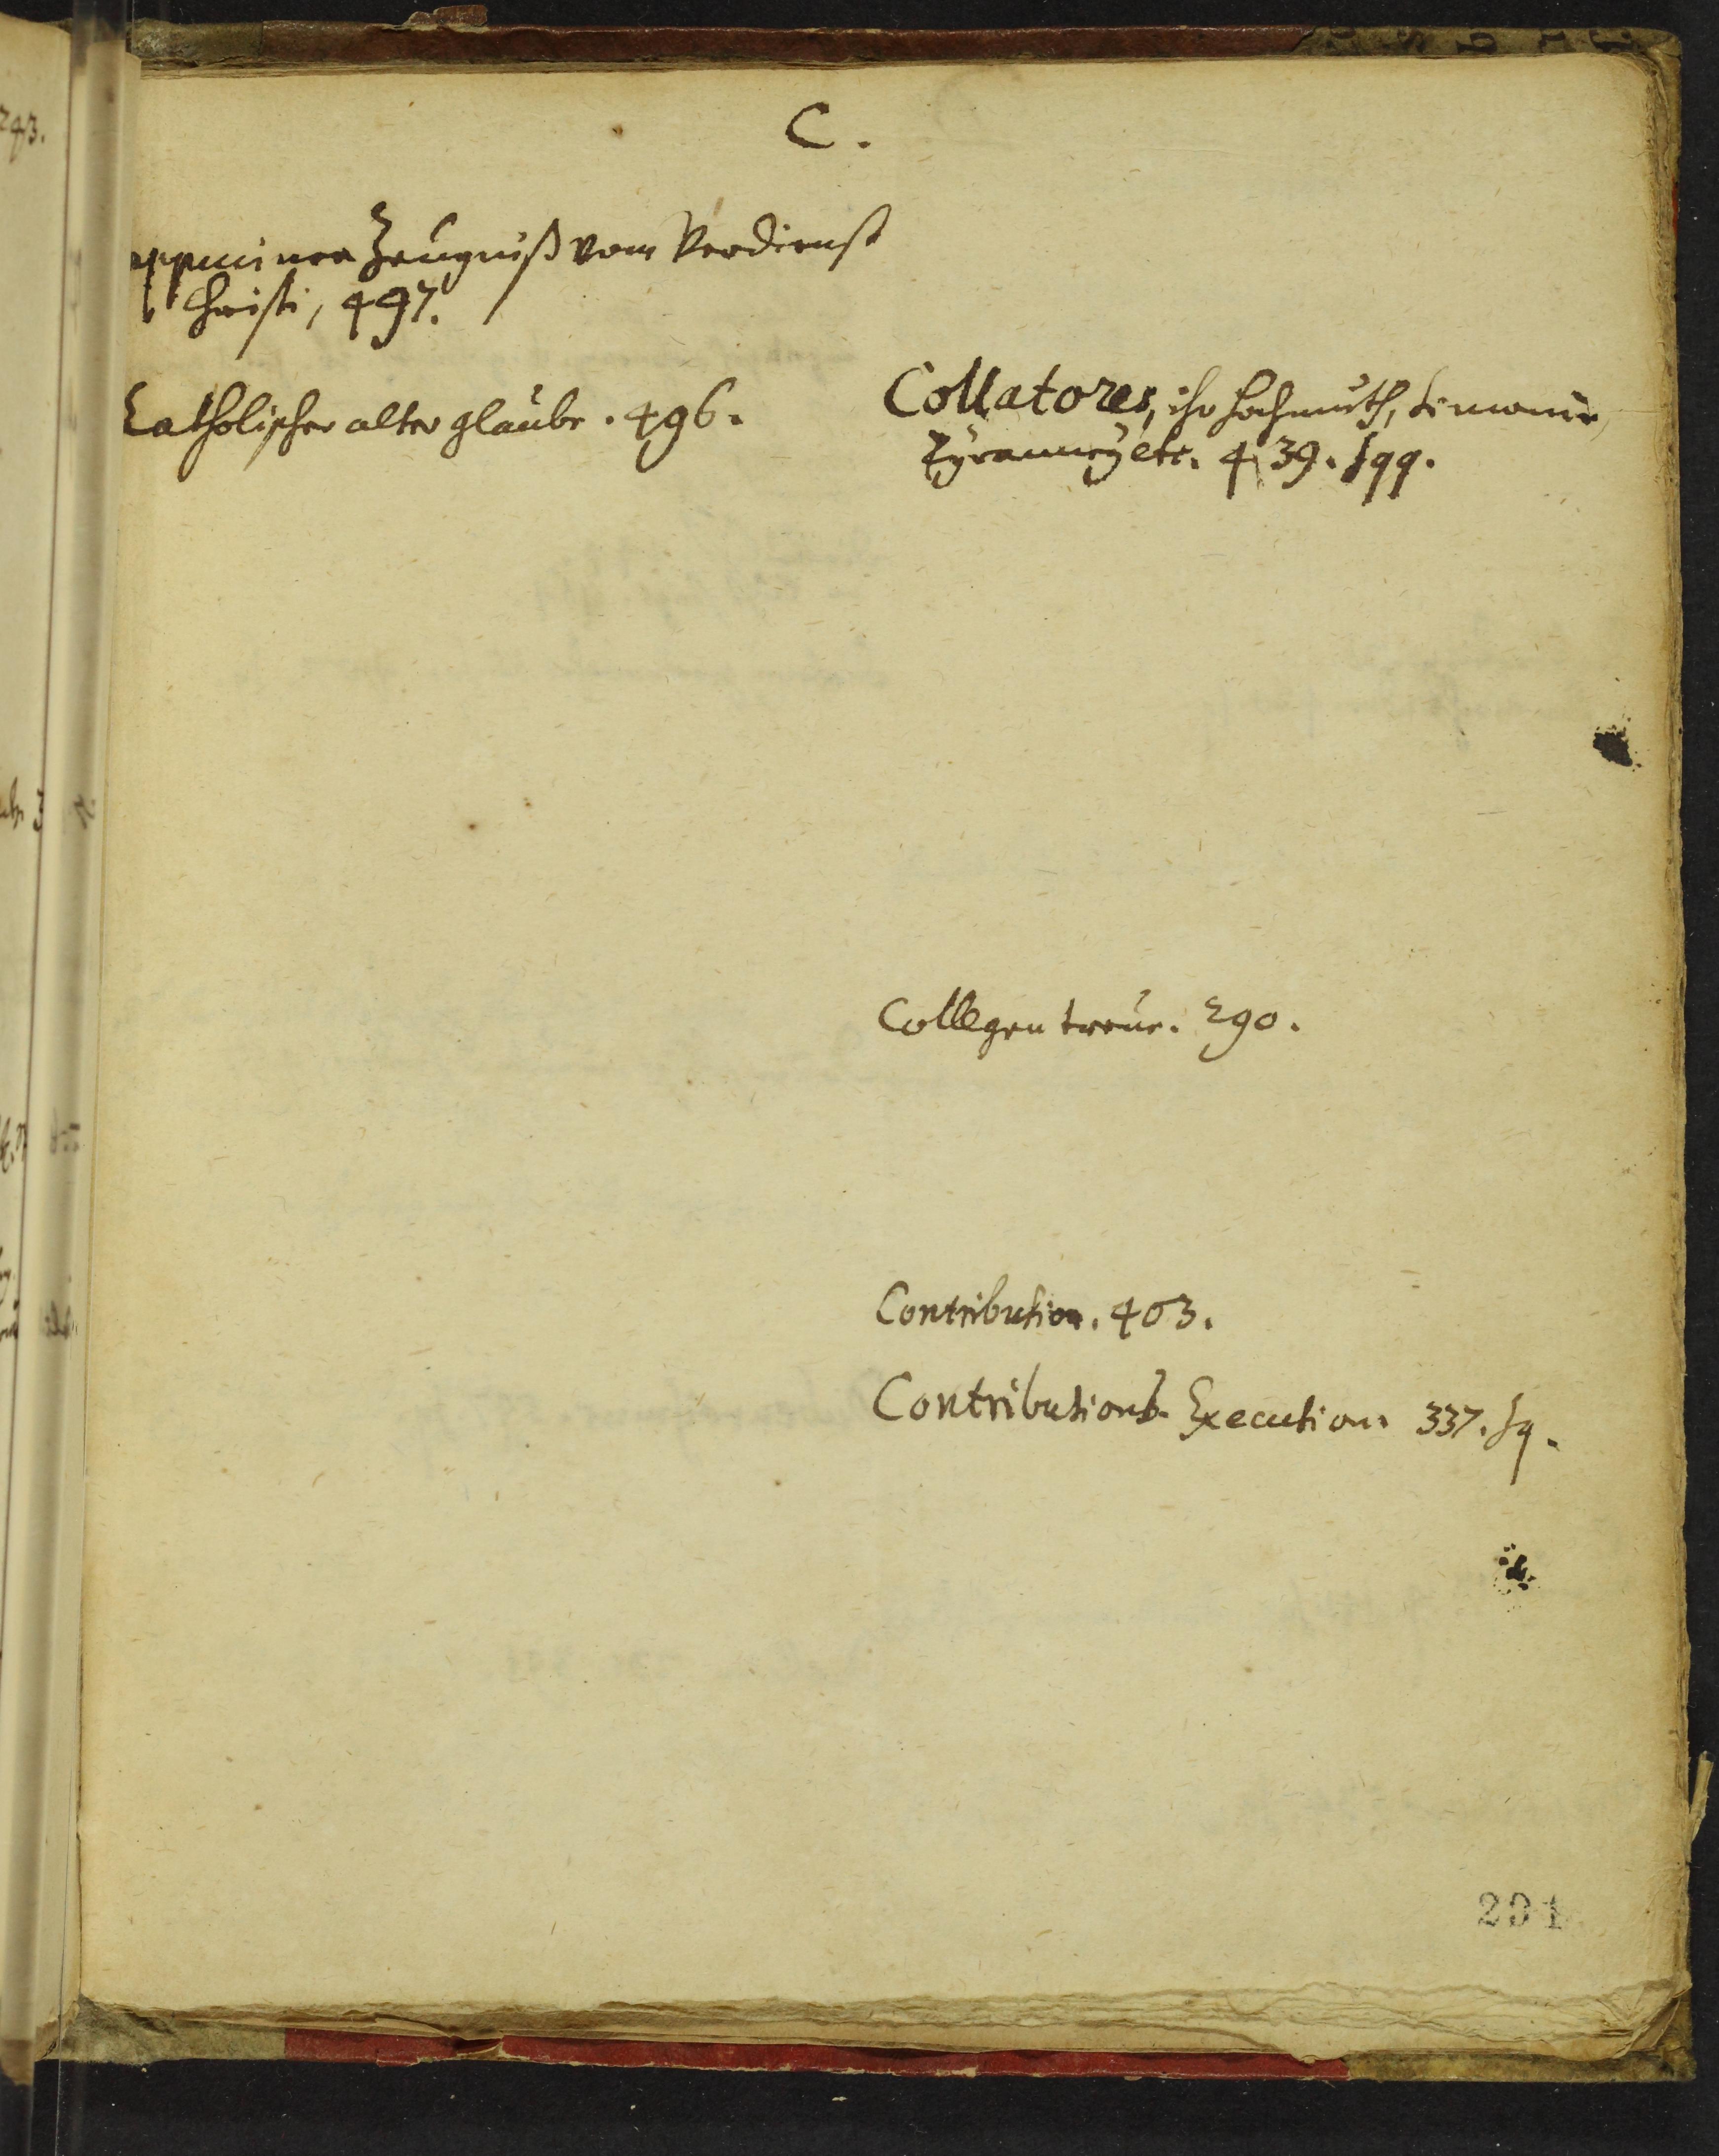 C.
appuciner Zeugniß vom Verdienst
Christi, 497.
Catholischer alter glaube. 496.
Collatores, ihr hochmuth, Simonie,
Tyranney etc. 439. sqq.
Collegen treue. 290.
Contribution. 403.
Contributions-Execution. 337. sq.
291
293.